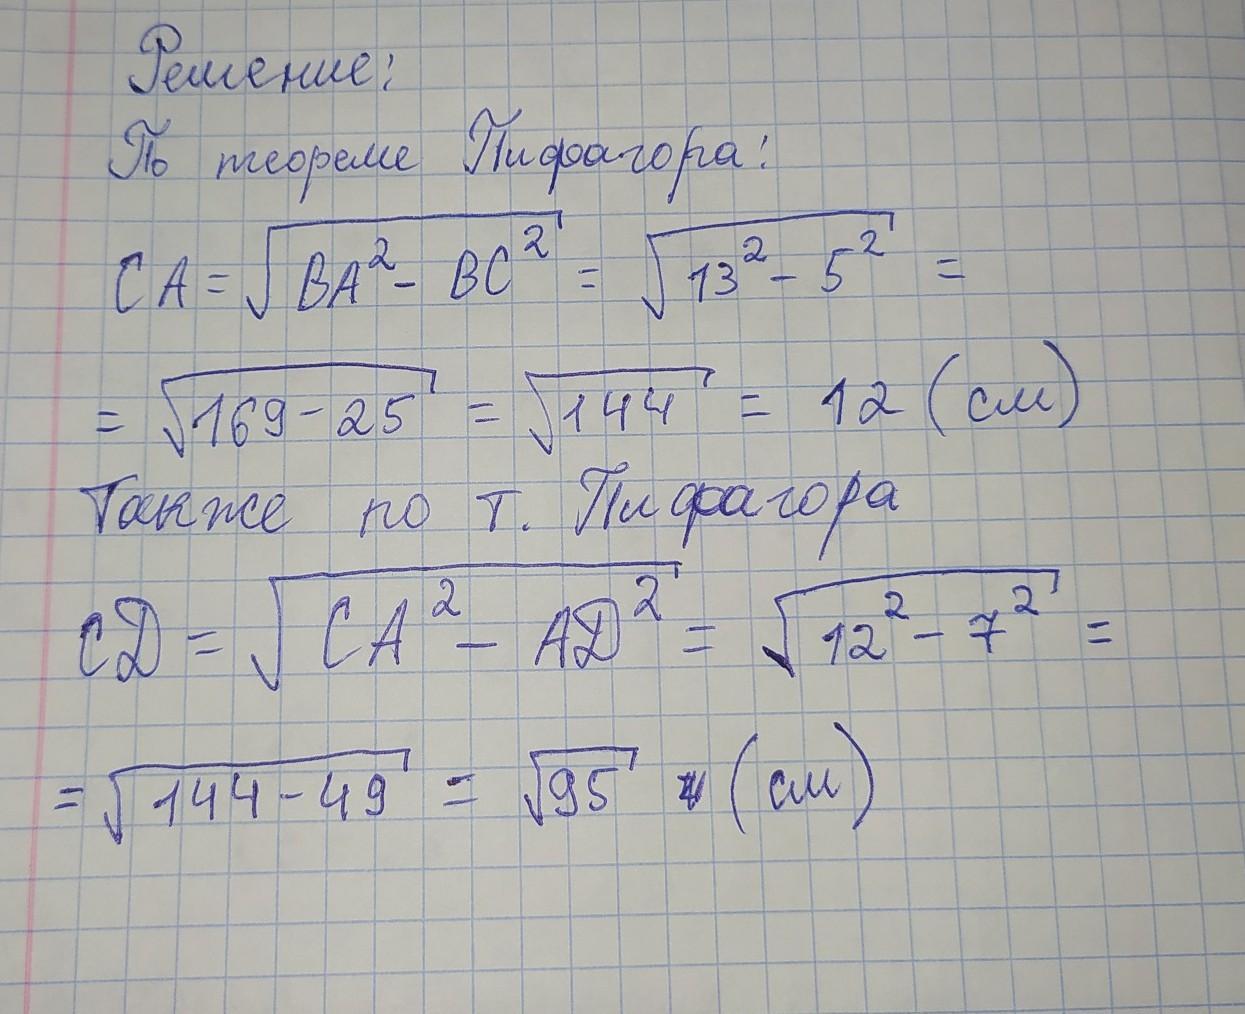 Решение:
По теореме Пифагора:
CA = √(BA² - BC²) = √(13² - 5²) =
= √(169 - 25) = √144 = 12 (см)
Также по т. Пифагора
CD = √(CA² - AD²) = √(12² - 7²) =
= √(144 - 49) = √95 (см)